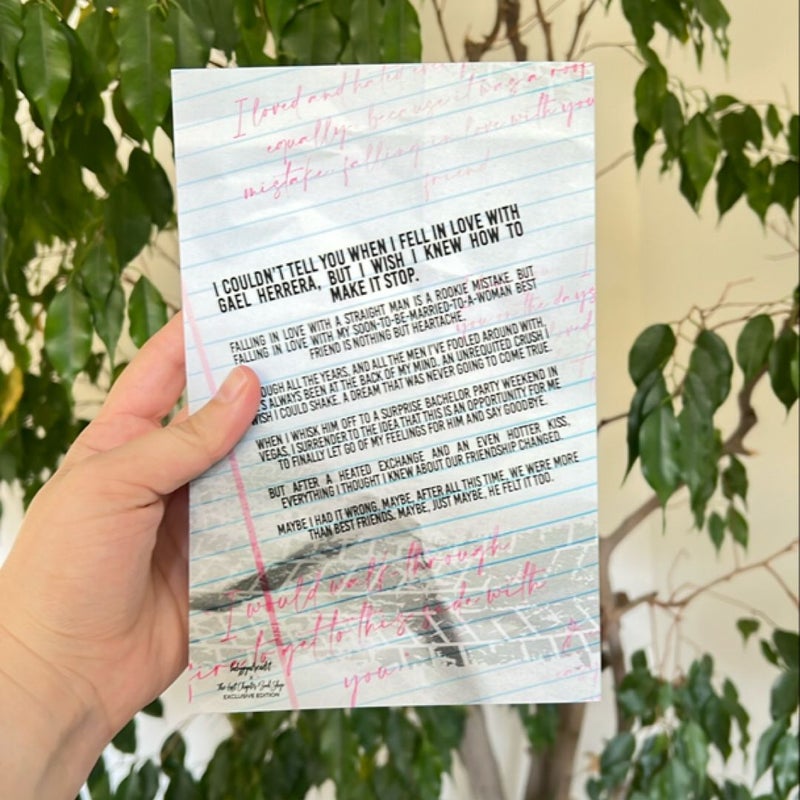 I loved and hated
equally. because it was a
mistake. falling in love with you
friend
I COULDN'T TELL YOU WHEN I FELL IN LOVE WITH
GAEL HERRERA, BUT I WISH I KNEW HOW TO
MAKE IT STOP.
FALLING IN LOVE WITH A STRAIGHT MAN IS A ROOKIE MISTAKE. BUT
FALLING IN LOVE WITH MY SOON-TO-BE-MARRIED-TO-A-WOMAN BEST
FRIEND IS NOTHING BUT HEARTACHE.
OUGH ALL THE YEARS, AND ALL THE MEN I'VE FOOLED AROUND WITH,
'S ALWAYS BEEN AT THE BACK OF MY MIND. AN UNREQUITED CRUSH I
WISH I COULD SHAKE. A DREAM THAT WAS NEVER GOING TO COME TRUE.
WHEN I WHISK HIM OFF TO A SURPRISE BACHELOR PARTY WEEKEND IN
VEGAS, I SURRENDER TO THE IDEA THAT THIS IS AN OPPORTUNITY FOR ME
TO FINALLY LET GO OF MY FEELINGS FOR HIM AND SAY GOODBYE.
BUT AFTER A HEATED EXCHANGE AND AN EVEN HOTTER KISS,
EVERYTHING I THOUGHT I KNEW ABOUT OUR FRIENDSHIP CHANGED.
MAYBE I HAD IT WRONG. MAYBE, AFTER ALL THIS TIME, WE WERE MORE
THAN BEST FRIENDS. MAYBE, JUST MAYBE, HE FELT IT TOO.
I would walk through
to get to this side with
you
The Last Chapter Book Shop
EXCLUSIVE EDITION